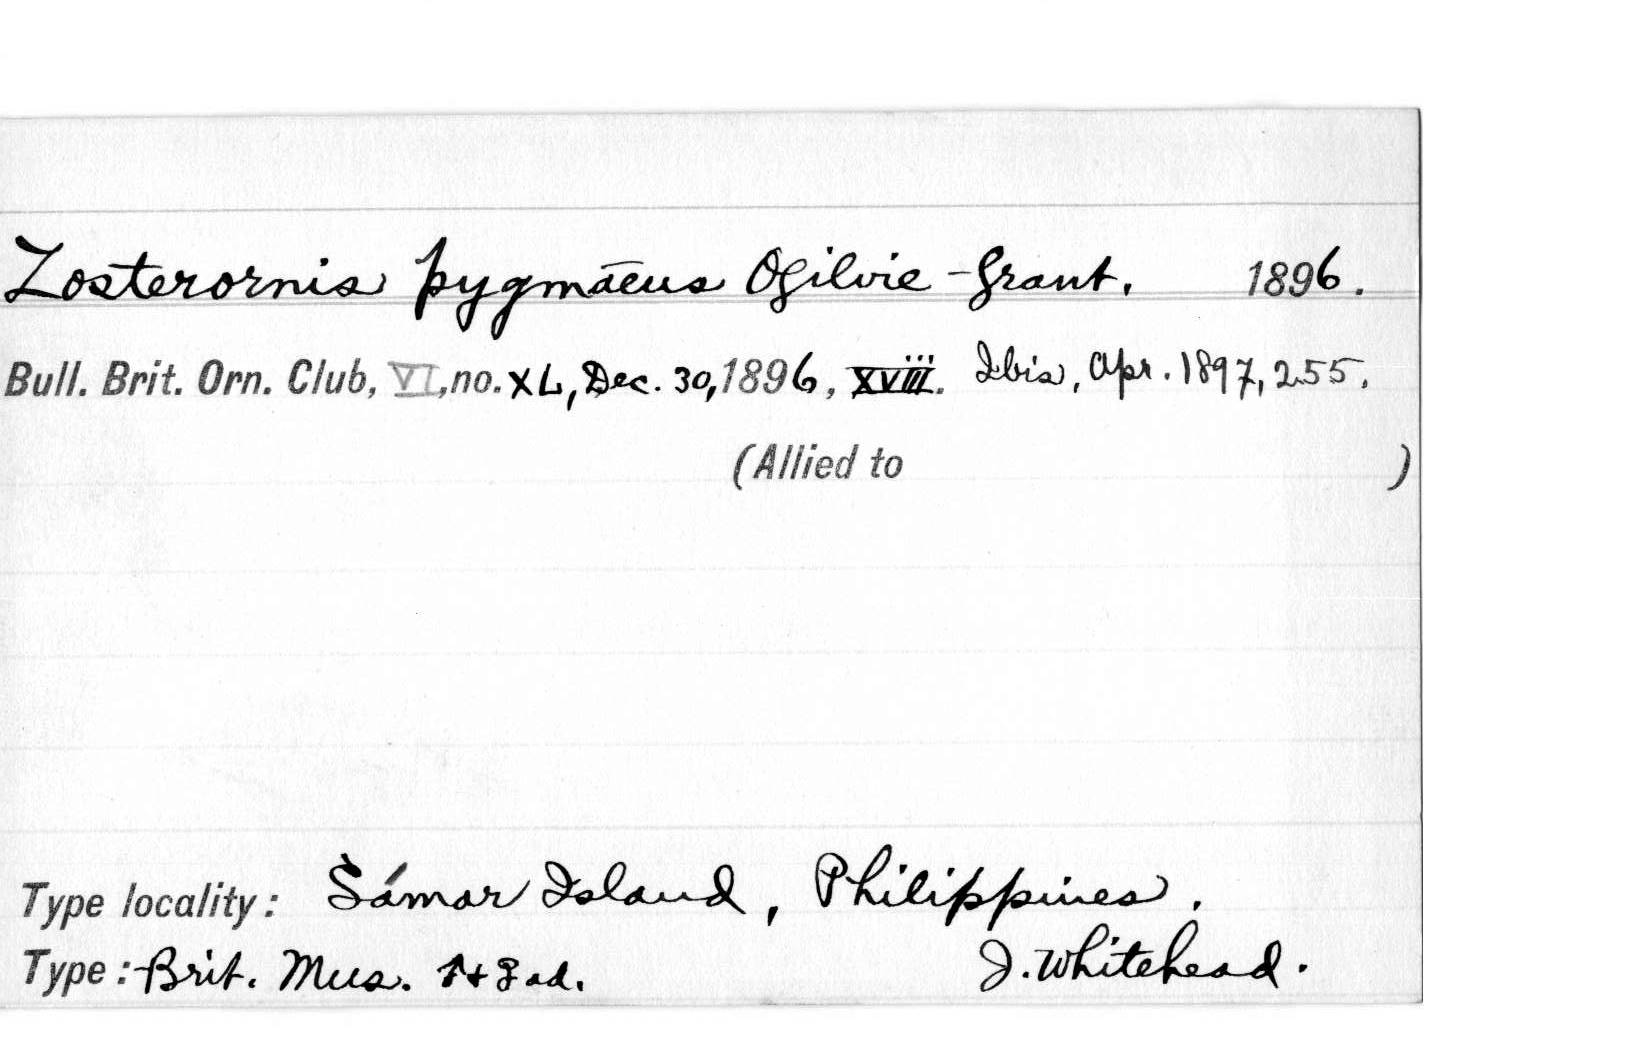 Zosterornis pygmāeus Ogilvie-Grant. 1896.
Bull. Brit. Orn. Club, VI, no. XL, Dec. 30, 1896, xviii. Ibis, Apr. 1897, 255.
(Allied to )
Type locality: Sámar Island, Philippines.
Type: Brit. Mus. ♂ + ♀ ad. J. Whitehead.